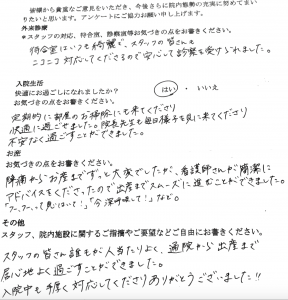 皆様から貴重なご意見をいただき、今後さらに院内態勢の充実に努めてまい
りたいと思います。アンケートにご協力お願い申し上げます。
外来診療
*スタッフの対応、待合室、診察道等お気づきの点をお書きください。
待合室はいつも綺麗で、スタッフの皆さんも
ニコニコ対応してくださるので安心して診察を受けられました。
入院生活
快適にお過ごしになれましたか? はい ・ いいえ
お気づきの点をお書きください。
定期的に部屋のお掃除にも来てくださり
快適に過ごせました。院長先生も毎日様子を見に来てくださり
不安なく過ごすことができました。
お産
お気づきの点をお書きください。
陣痛からお産まですっと大変でしたが、看護師さんが簡潔に
アドバイスをくださったので出産までスムーズに進むことができました。
「フーフーって長いはいて!」「今深呼吸して!」など。
その他
スタッフ、院内施設に関するご指摘やご要望などご自由にお書きください。
スタッフの皆さん誰もが人当たりよく、通院から出産まで
居心地よく過ごすことができました。
入院中も手厚く対応してくださりありがとうございました!!